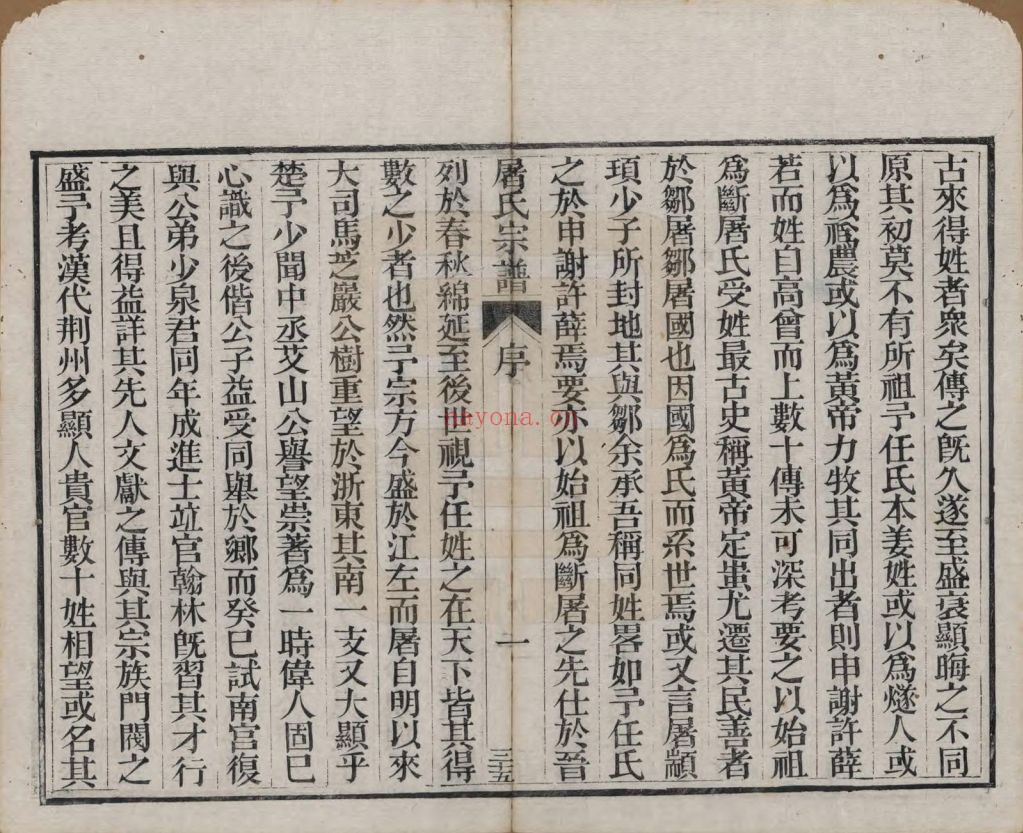 古來得姓者衆矣傳之旣久遂至盛衰顯晦之不同
原其初莫不有所祖予任氏本姜姓或以爲燧人或
以爲神農或以爲黃帝力牧其同出者則申謝許薛
若而姓自高曾而上數十傳未可深考要之以始祖
爲斷屠氏受姓最古史稱黃帝定蚩尤遷其民善者
於鄒屠鄒屠國也因國爲氏而系世焉或又言屠顓
頊少子所封地其與鄒余承吾稱同姓畧如予任氏
之於申謝許薛焉要亦以始祖爲斷屠之先仕於晉
屠氏宗譜 序 一 三十五
列於春秋綿延至後世視予任姓之在天下皆其得
數之少者也然予宗方今盛於江左而屠自明以來
大司馬芝巖公樹重望於浙東其南一支又大顯乎
楚予少聞中丞艾山公譽望崇著爲一時偉人固已
心識之後偕公子益受同舉於鄉而癸巳試南宮復
與公弟少泉君同年成進士竝官翰林旣習其才行
之美且得益詳其先人文獻之傳與其宗族門閥之
盛予考漢代荆州多顯人貴官數十姓相望或名其
nayona.cn